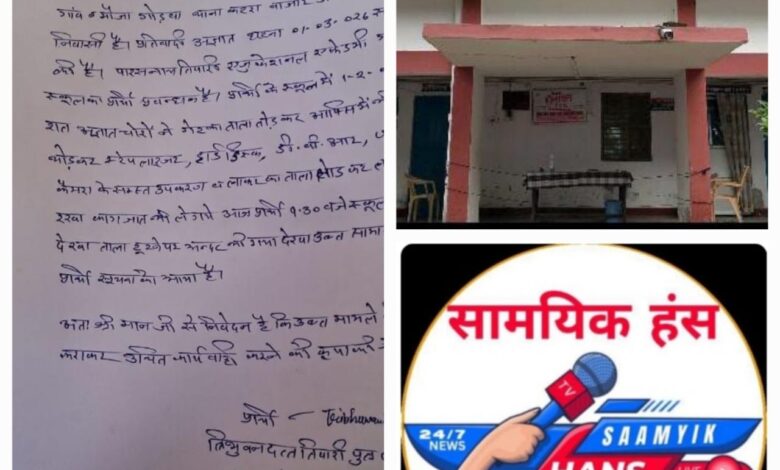 गांव व मौजा गोड़वा थाना कटरा बाजार
निवासी है। प्रतिवादी अज्ञात घटना 01-03-026
की है। पारसनाथ तिवारी एजुकेशनल एकेडमी
स्कूल का प्रार्थी प्रबन्धक है। प्रार्थी के स्कूल में 1-2-
रात अज्ञात चोरों ने गेट का ताला तोड़कर आफिस में
तोड़कर स्टेपलाइजर, हार्डडिस्क, डी.वी.आर,
कैमरा के समस्त उपकरण व लाकर का ताला तोड़ कर
रखा कागजात भी ले गये आज प्रार्थी 9.30 बजे स्कूल
देखा ताला टूटने पर अन्दर की गया देखा उक्त
प्रार्थी सूचना को आया है।
अतः श्री मान जी से निवेदन है कि उक्त मामले
कराकर उचित कार्यवाही करने की कृपा की
प्रार्थी -
त्रिभुवन दत्त तिवारी पुत्र
सामयिक हंस
TV
24/7
NEWS
SAAMYIK
HANS